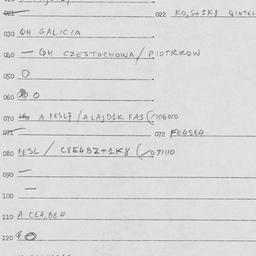 021 022 KQ,S+1K8 QINTEL
030 QH GALICIA
040 — QH CZESTOCHOWA/PIOTRKOW
050 O
060 O
070 A FESL7 /ALAJD1K FAS (/106010
071 072 FE4SE4
080 FESL / CVE4BZ+1K8 (/071110
090 —
100 —
110 A CE4,BE4
120 O